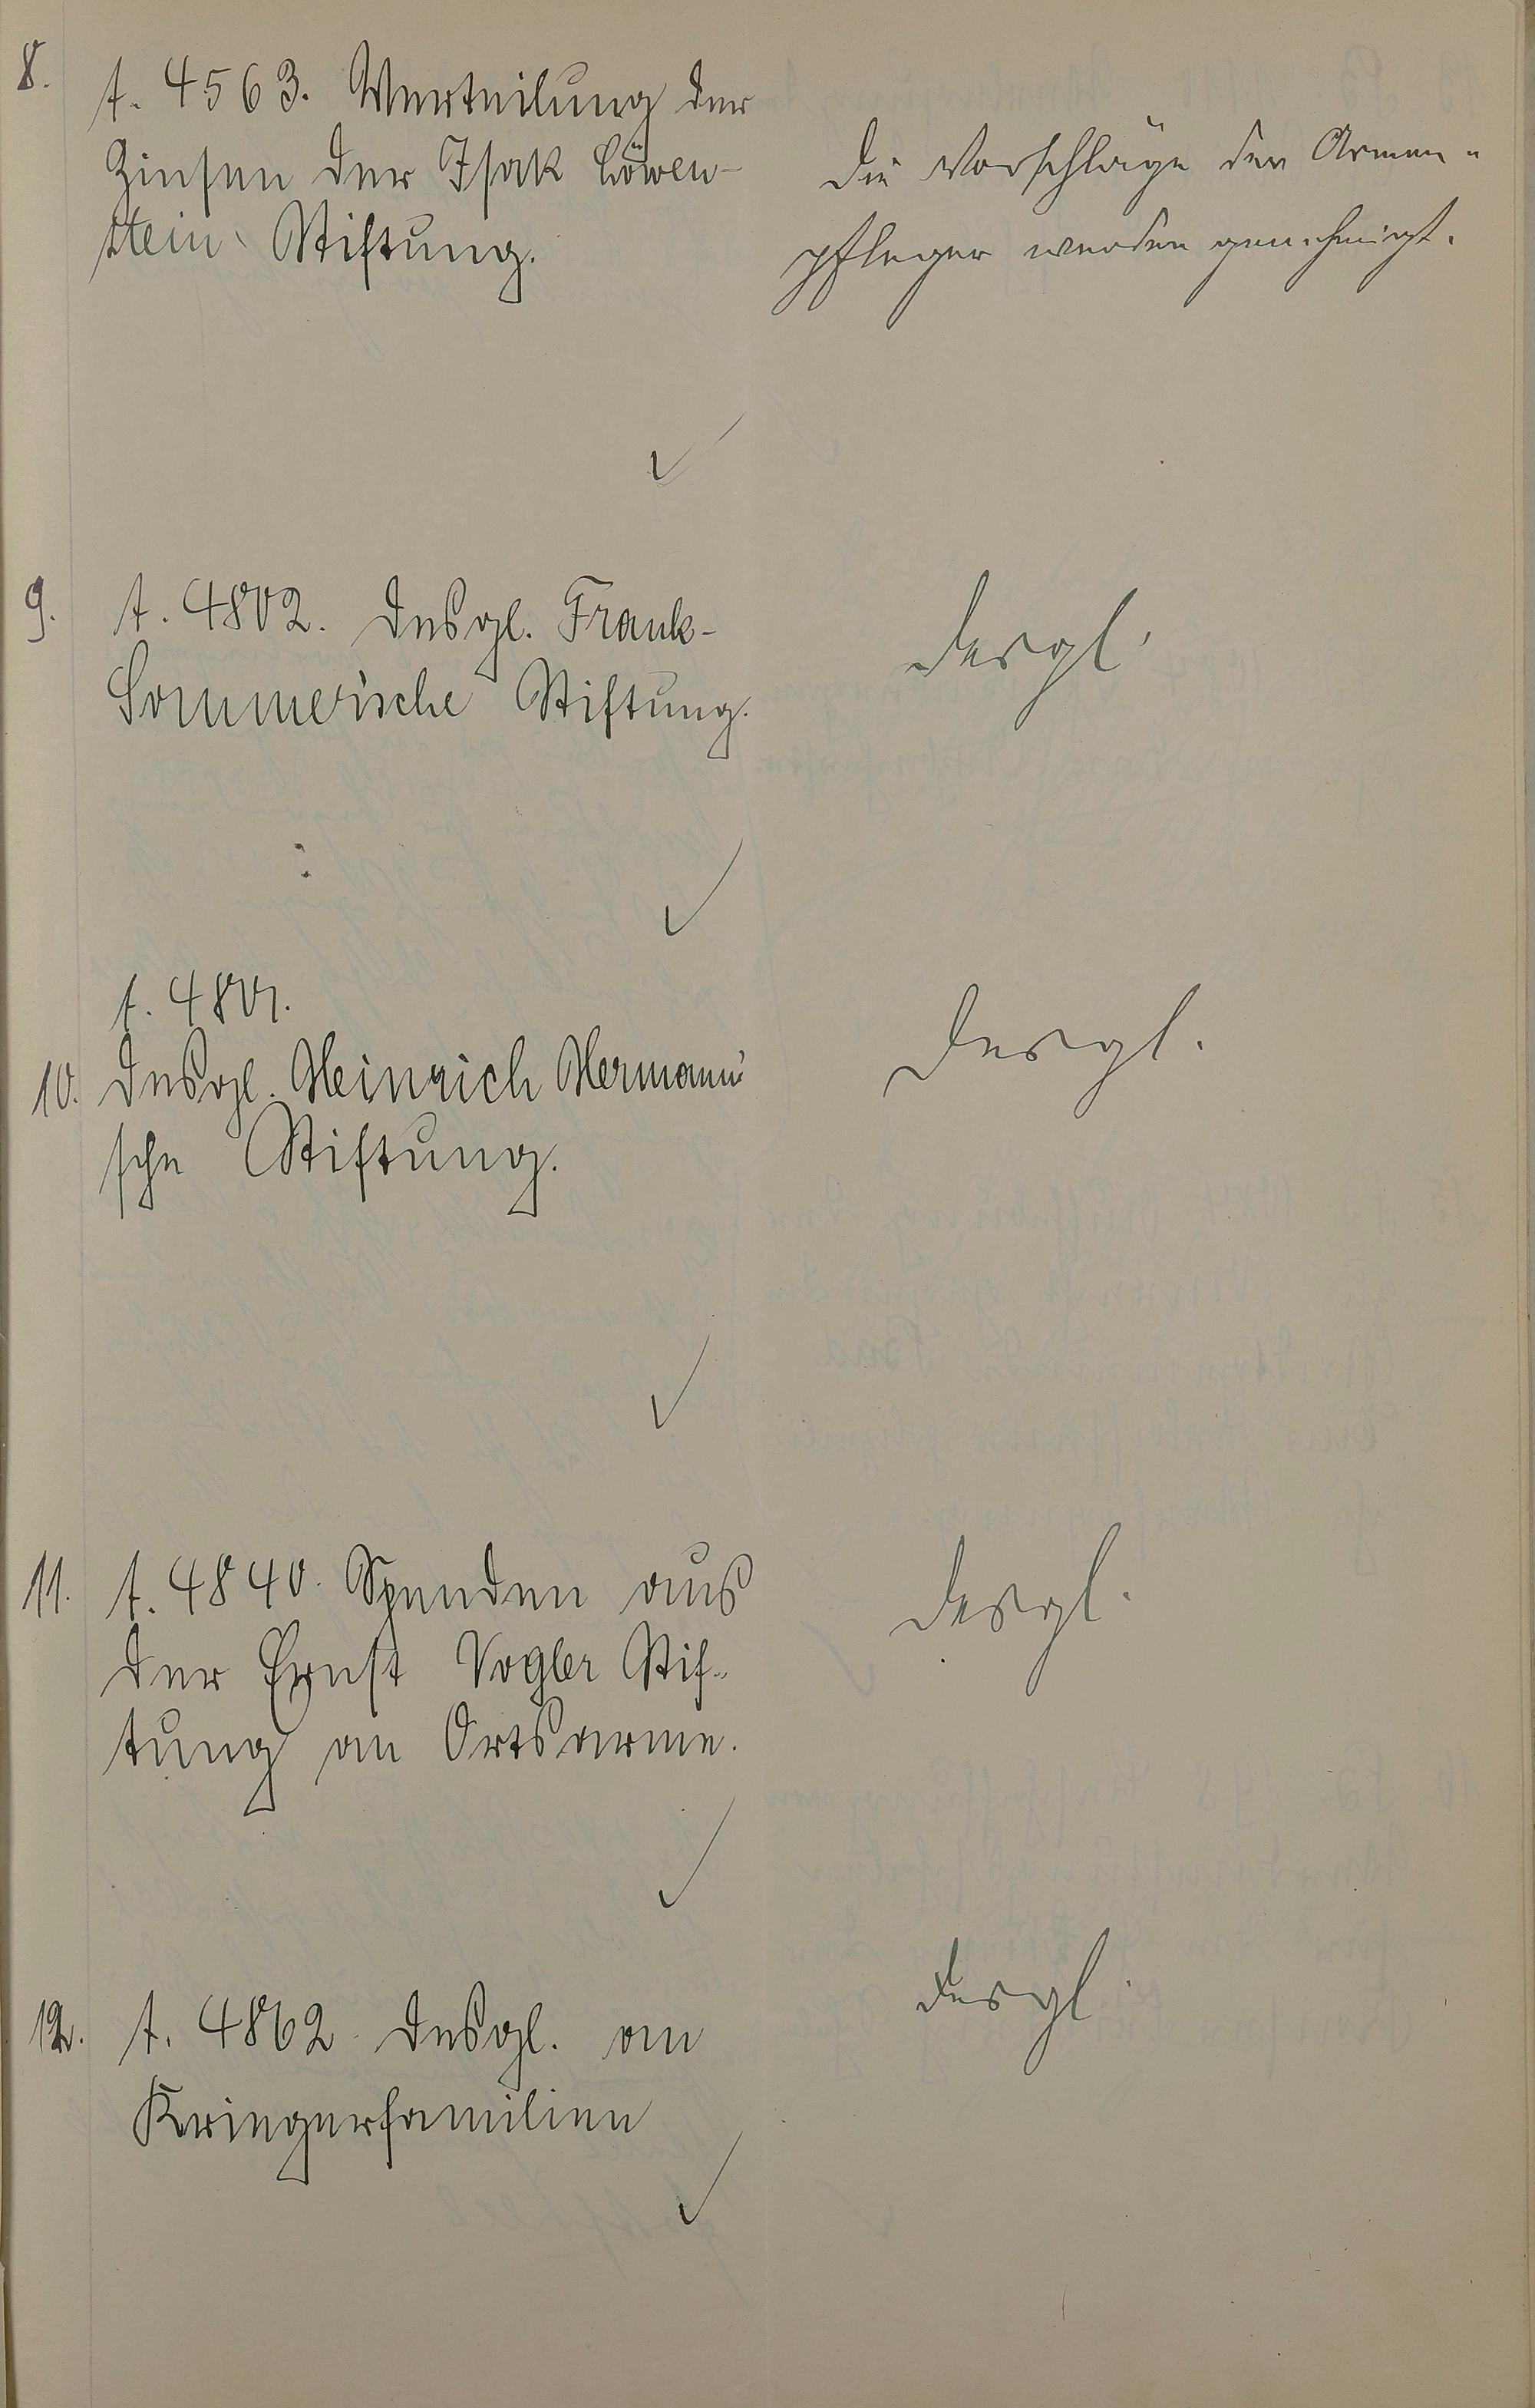 8.
t. 4563. Verteilung der
Zinsen der Isak Löwen-
stein Stiftung.
Die Vorschläge der Armen-
pfleger werden genehmigt.
9.
t. 4802. Desgl. Frank-
Sommerische Stiftung.
Desgl.
t. 4801.
10. Desgl. Heinrich Hermann'
sche Stiftung.
Desgl.
11. t. 4840. Spenden aus
der Ernst Vogler Stif-
tung an Ortsarme.
Desgl.
12. t. 4862. Desgl. an
Kriegerfamilien
Desgl.